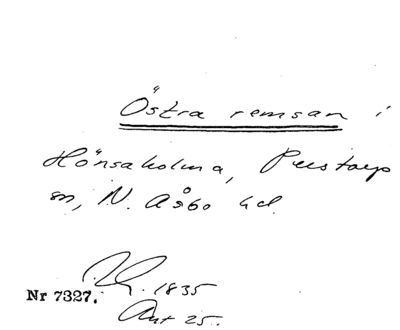 Östra remsan i
Hönsaholma, Perstorps
sn, N. Åsbo hd.
Nr 7327. 1835
Akt 25.